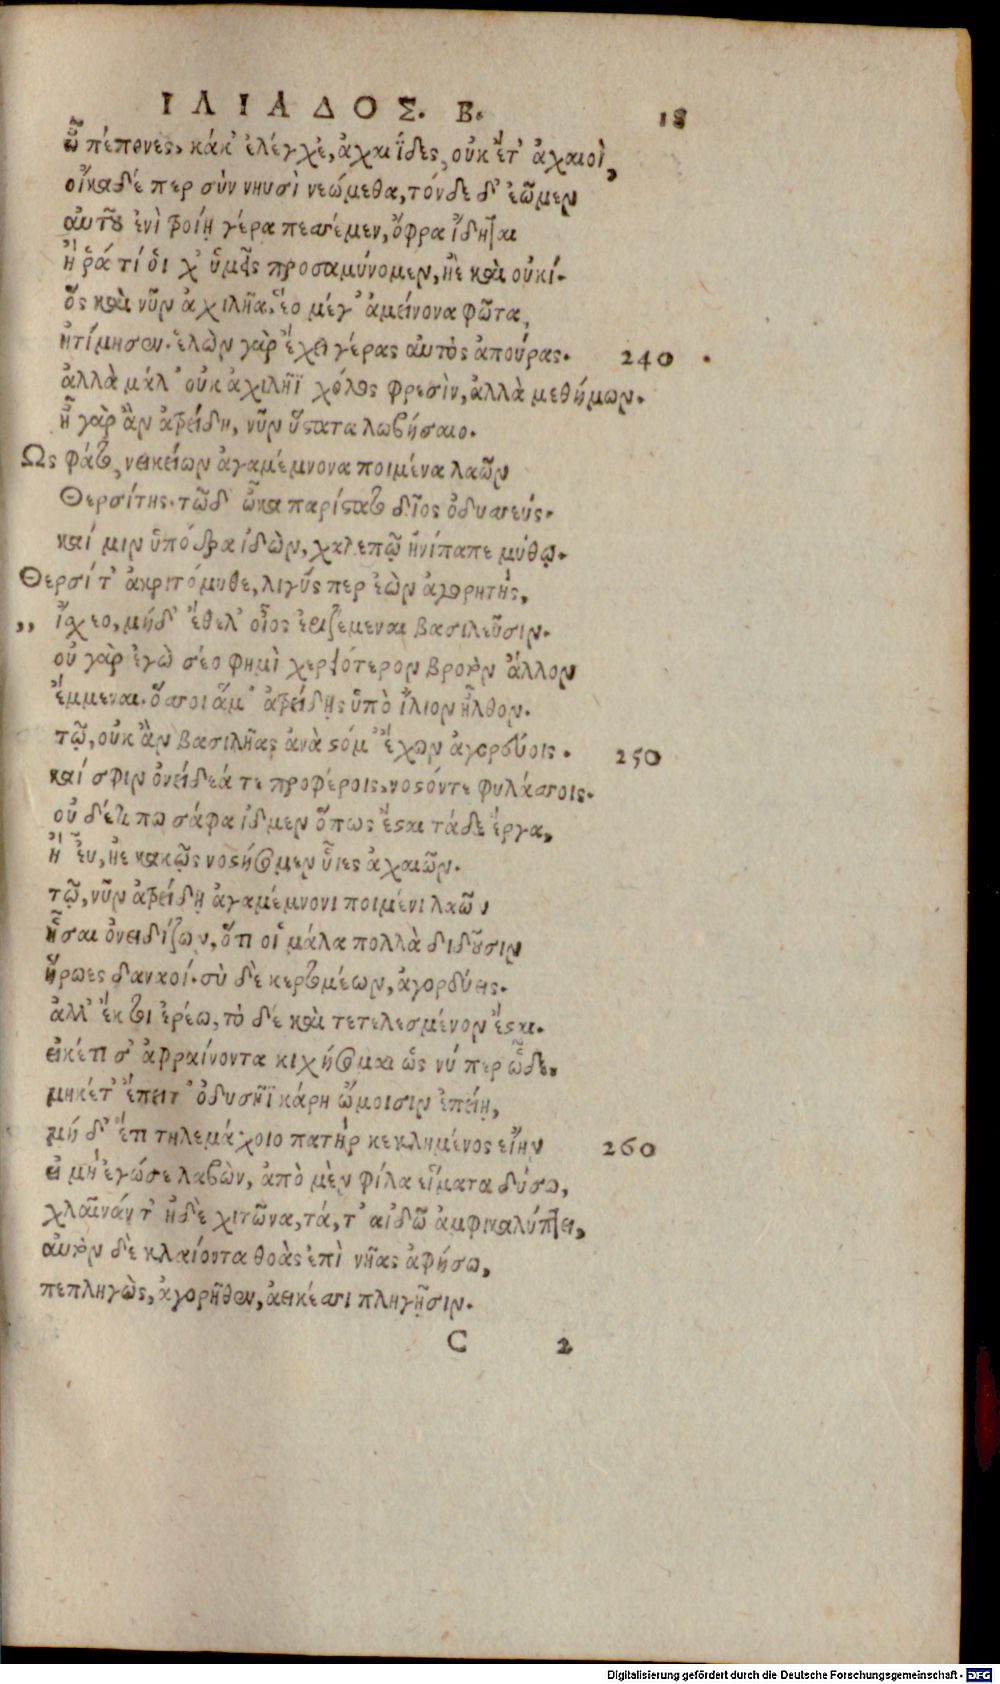 ΙΛΙΑΔΟΣ. Β. 18
ὦ πέπονες, κάκ' ἐλέγχε', ἀχαιΐδες, οὐκ ἔτ' ἀχαιοὶ,
οἴκαδέ περ σὺν νηυσὶ νεώμεθα, τόνδε δ' ἐῶμεν
αὐτοῦ ἐνὶ τροίῃ γέρα πεσσέμεν, ὄφρα ἴδηται
ἤ ῥά τί οἱ χ' ὑμεῖς προσαμύνομεν, ἠὲ καὶ οὐκί.
ὃς καὶ νῦν ἀχιλῆα, ἕο μέγ' ἀμείνονα φῶτα,
ἠτίμησεν. ἑλὼν γὰρ ἔχει γέρας αὐτὸς ἀπούρας. 240
ἀλλὰ μάλ' οὐκ ἀχιλῆϊ χόλος φρεσὶν, ἀλλὰ μεθήμων.
ἦ γὰρ ἂν ἀτρείδη, νῦν ὕστατα λωβήσαιο.
Ως φάτο, νεικείων ἀγαμέμνονα ποιμένα λαῶν
Θερσίτης. τῷ δ' ὦκα παρίστατο δῖος ὀδυσσεύς.
καί μιν ὑπόδρα ἰδὼν, χαλεπῷ ἠνίπαπε μύθῳ.
Θερσίτ' ἀκριτόμυθε, λιγύς περ ἐὼν ἀγορητής,
,, ἴσχεο, μήδ' ἔθελ' οἶος ἐριζέμεναι βασιλεῦσιν.
οὐ γὰρ ἐγὼ σέο φημὶ χερειότερον βροτὸν ἄλλον
ἔμμεναι. ὅσσοι ἅμ' ἀτρείδῃς ὑπὸ ἴλιον ἦλθον.
τῷ, οὐκ ἂν βασιλῆας ἀνὰ στόμ' ἔχων ἀγορεύοις. 250
καί σφιν ὀνείδεά τε προφέροις, νοστόντε φυλάσσοις.
οὐ δέ τί πω σάφα ἴδμεν ὅπως ἔσται τάδε ἔργα,
ἢ εὖ, ἠὲ κακῶς νοστήσομεν υἷες ἀχαιῶν.
τῷ, νῦν ἀτρείδῃ ἀγαμέμνονι ποιμένι λαῶν
ἧσαι ὀνειδίζων, ὅτι οἱ μάλα πολλὰ διδοῦσιν
ἥρωες δαναοί. σὺ δὲ κερτομέων, ἀγορεύεις.
ἀλλ' ἔκ τοι ἐρέω, τὸ δέ καὶ τετελεσμένον ἔσται.
εἰ κέτι σ' ἀφραίνοντα κιχήσομαι ὥς νύ περ ὧδε,
μηκέτ' ἔπειτ' ὀδυσῆϊ κάρη ὤμοισιν ἐπείη,
μή δ' ἔτι τηλεμάχοιο πατὴρ κεκλημένος εἴην 260
εἰ μὴ ἐγώ σε λαβὼν, ἀπὸ μὲν φίλα εἵματα δύσω,
χλαῖνάν τ' ἠδὲ χιτῶνα, τά, τ' αἰδῶ ἀμφικαλύπτει,
αὐτὸν δὲ κλαίοντα θοὰς ἐπὶ νῆας ἀφήσω,
πεπληγὼς, ἀγορῆθεν, ἀεικέσσι πληγῇσιν.
C 2
Digitalisierung gefördert durch die Deutsche Forschungsgemeinschaft - DFG